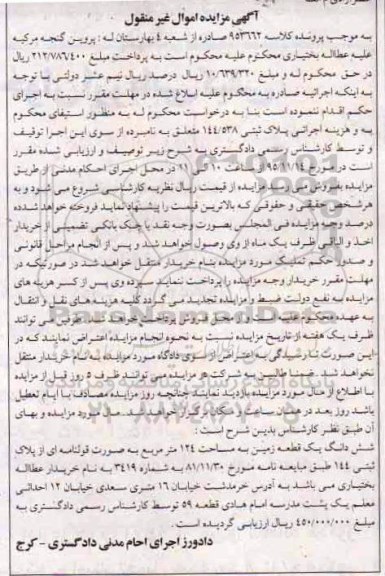 آگهی مزایده اموال غیر منقول
به موجب پرونده کلاسه ۹۵۳۶۶۲ صادره از شعبه ۴ بهارستان له : پروین گنجه مرکبه
علیه عطااله بختیاری محکوم علیه محکوم است به پرداخت مبلغ ۲۱۲/۷۸۶/۴۰۰ ریال
در حق محکوم له و مبلغ ۱۰/۶۳۹/۳۲۰ ریال درصد ریال نیم عشر دولتی با توجه
به اینکه اجرائیه صادره به محکوم علیه ابلاغ شده در مهلت مقرر نسبت به اجرای
حکم اقدام ننموده است بنا به درخواست محکوم له به منظور استیفای محکوم
به و هزینه اجرائی پلاک ثبتی ۱۴۴/۵۳۸ متعلق به نامبرده از سوی این اجرا توقیف
و توسط کارشناس رسمی دادگستری به شرح زیر توصیف و ارزیابی شده مقرر
است در مورخ ۹۵/۱۱/۱۴ از ساعت ۱۰ الی ۱۱ در محل اجرای احکام مدنی از طریق
مزایده بفروش می رسد مزایده از قیمت ریال نظریه کارشناسی شروع می شود و به
هر شخص حقیقی و حقوقی که بالاترین قیمت را پیشنهاد نماید فروخته خواهد شد ده
درصد وجه مزایده فی المجلس بصورت وجه نقد یا چک بانکی تضمینی از خریدار
اخذ و الباقی ظرف یک ماه از وی وصول خواهد شد و پس از انجام مراحل قانونی
و صدور حکم تملیک مورد مزایده بنام خریدار منتقل خواهد شد در صورتیکه در
مهلت مقرر خریدار وجه مزایده را پرداخت ننماید سپرده وی پس از کسر هزینه های
مزایده به نفع دولت ضبط و مزایده تجدید می گردد کلیه هزینه های نقل و انتقال
به عهده محکوم علیه است که از محل فروش پرداخت خواهد شد طرفین می توانند
ظرف یک هفته از تاریخ مزایده نسبت به نحوه انجام مزایده اعتراض نمایند که در
این صورت تا رسیدگی به اعتراض از سوی دادگاه مورد مزایده به نام خریدار منتقل
نخواهد شد. ضمنا طالبین به شرکت در مزایده می توانند ظرف ۵ روز قبل از مزایده
با اطلاع از حال مورد مزایده بازدید نمایند چنانچه روز مزایده مصادف با ایام تعطیل
باشد روز بعد در همان ساعت و مکان برگزار خواهد شد. مال مورد مزایده و بهای
آن طبق نظر کارشناس بدین شرح است :
شش دانگ یک قطعه زمین به مساحت ۱۲۴ متر مربع به صورت قولنامه ای از پلاک
ثبتی ۱۴۴ طبق مبایعه نامه مورخ ۸۱/۱۱/۳۰ به شماره ۳۴۱۹ به نام خریدار عطااله
بختیاری می باشد به آدرس خرمدشت خیابان ۱۶ متری سعدی خیابان ۱۲ احداثی
معلم یک پشت مدرسه امام هادی قطعه ۵۹ توسط کارشناس رسمی دادگستری به
مبلغ ۴۵۰/۰۰۰/۰۰۰ ریال ارزیابی گردیده است .
دادورز اجرای احام مدنی دادگستری - کرج